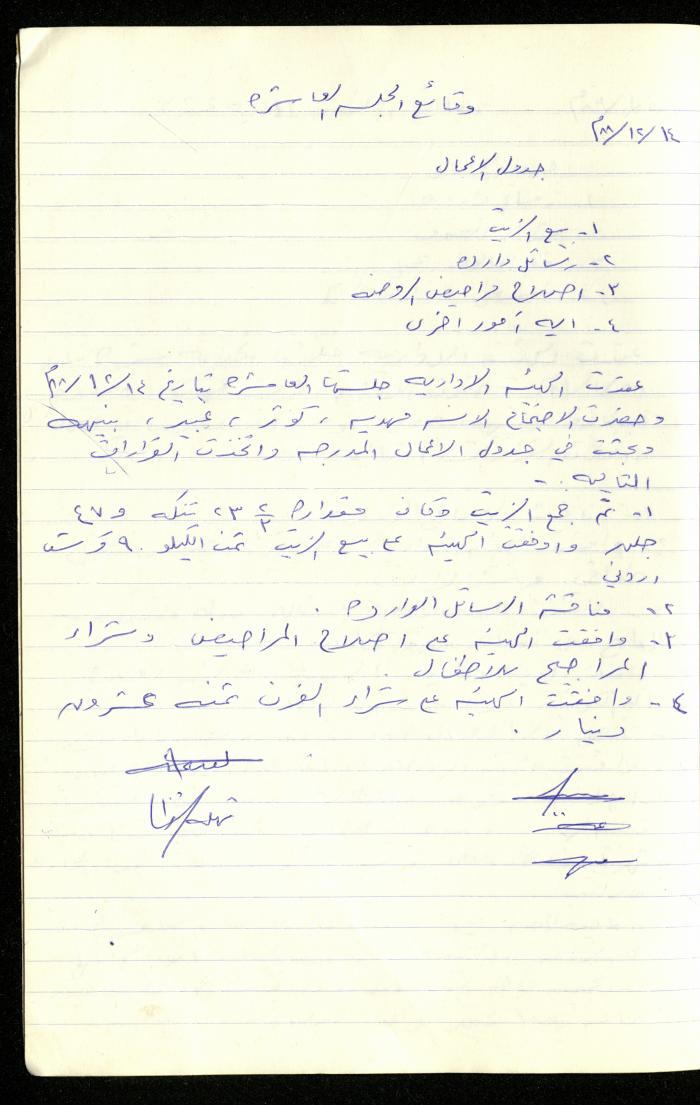 وقائع الجلسه العاشره
١٤/١٢/٨٨م
جدول الاعمال
١- بيع الزيت
٢- رسائل وارده
٣- اصلاح مراحيض الروضه
٤- ايه أمور اخرى
عقدت الهيئه الاداريه جلستها العاشره بتاريخ ١٤/١٢/٨٨م
وحضرت الاجتماع الانسه مهديه ، كوثر ، عبير ،
وبحثت في جدول الاعمال المدرجه واتخذت القرارات
التاليه :-
١- تم جمع الزيت وكان مقداره ٢٣ ٢/٣ تنكه و ٤٧
وافقت الهيئه على بيع الزيت ثمن الكيلو ٩٠ قرش
اردني
٢- مناقشة الرسائل الوارده .
٣- وافقت الهيئه على اصلاح المراحيض وشراء
المراجيح للأطفال .
٤- وافقت الهيئه على شراء الفرن ثمنه عشرون
دينار .